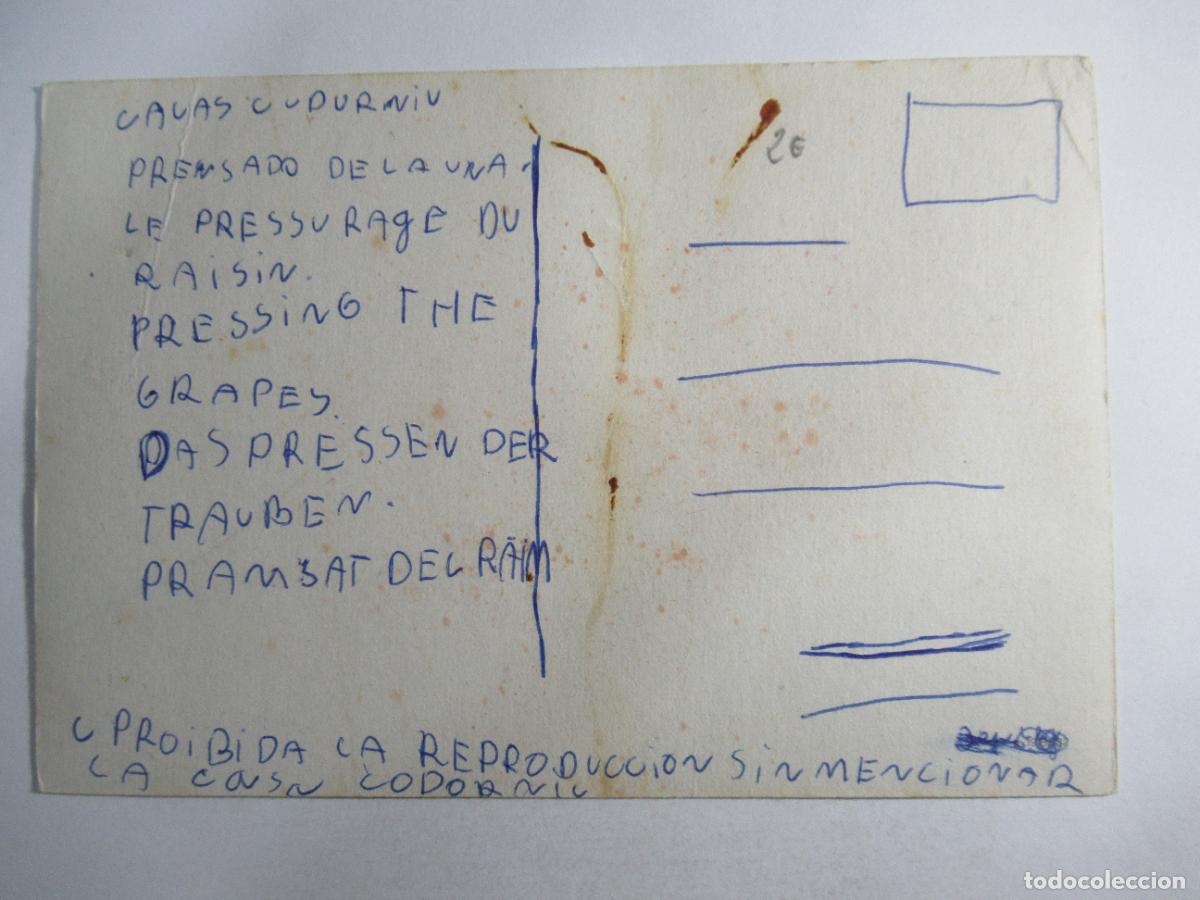 CAVAS CUDURNIU
PRENSADO DE LA UVA.
LE PRESSURAGE DU
RAISIN.
PRESSING THE
GRAPES.
DAS PRESSEN DER
TRAUBEN.
PRAMSAT DEL RAÏM
2€
PROIBIDA LA REPRODUCCION SIN MENCIONAR
LA CASA CODORNIU
todocoleccion